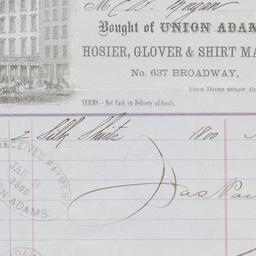 M
Bought of UNION ADAM
HOSIER, GLOVER & SHIRT MA
No. 637 BROADWAY,
FOUR DOORS BELOW BL
TERMS:—Net Cash on Delivery of Goods.
2 Silk Shirts 1800
RECEIVED PAYMENT
JAN
1866
ON ADAMS
ADAM